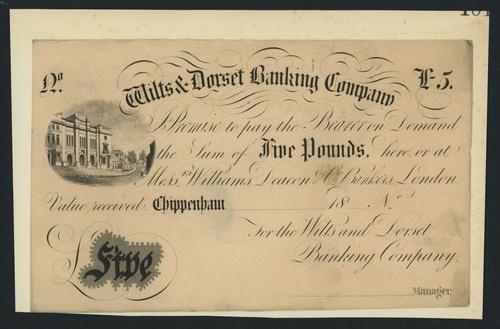 101
No. Wilts & Dorset Banking Company £5.
I Promise to pay the Bearer on Demand
the Sum of Five Pounds, here, or at
Messrs. Williams, Deacon & Co. Bankers, London.
Value received, Chippenham 18 No.
For the Wilts and Dorset
Banking Company.
£ Five
Manager.